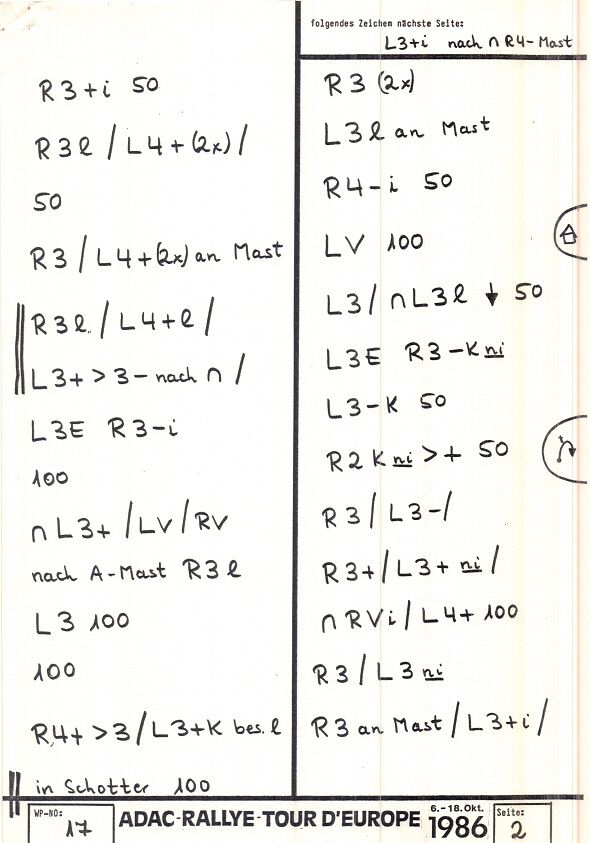 R3+i 50
R3l / L4+(2x) /
50
R3 / L4+(2x) an Mast
R3l / L4+l /
L3+ > 3- nach ∩ /
L3E R3-i
100
∩ L3+ / LV / RV
nach A-Mast R3l
L3 100
100
R4+ >3 / L3+K bes. l
in Schotter 100
folgendes Zeichen nächste Seite:
L3+i nach ∩ R4-Mast
R3 (2x)
L3l an Mast
R4-i 50
LV 100
L3 / ∩ L3l ↓ 50
L3E R3-K ni
L3-K 50
R2 K ni >+ 50
R3 / L3- /
R3+ / L3+ ni /
∩ RVi / L4+ 100
R3 / L3 ni
R3 an Mast / L3+i /
WP-NO:
17
ADAC-RALLYE-TOUR D'EUROPE
6.-18.Okt.
1986
Seite:
2